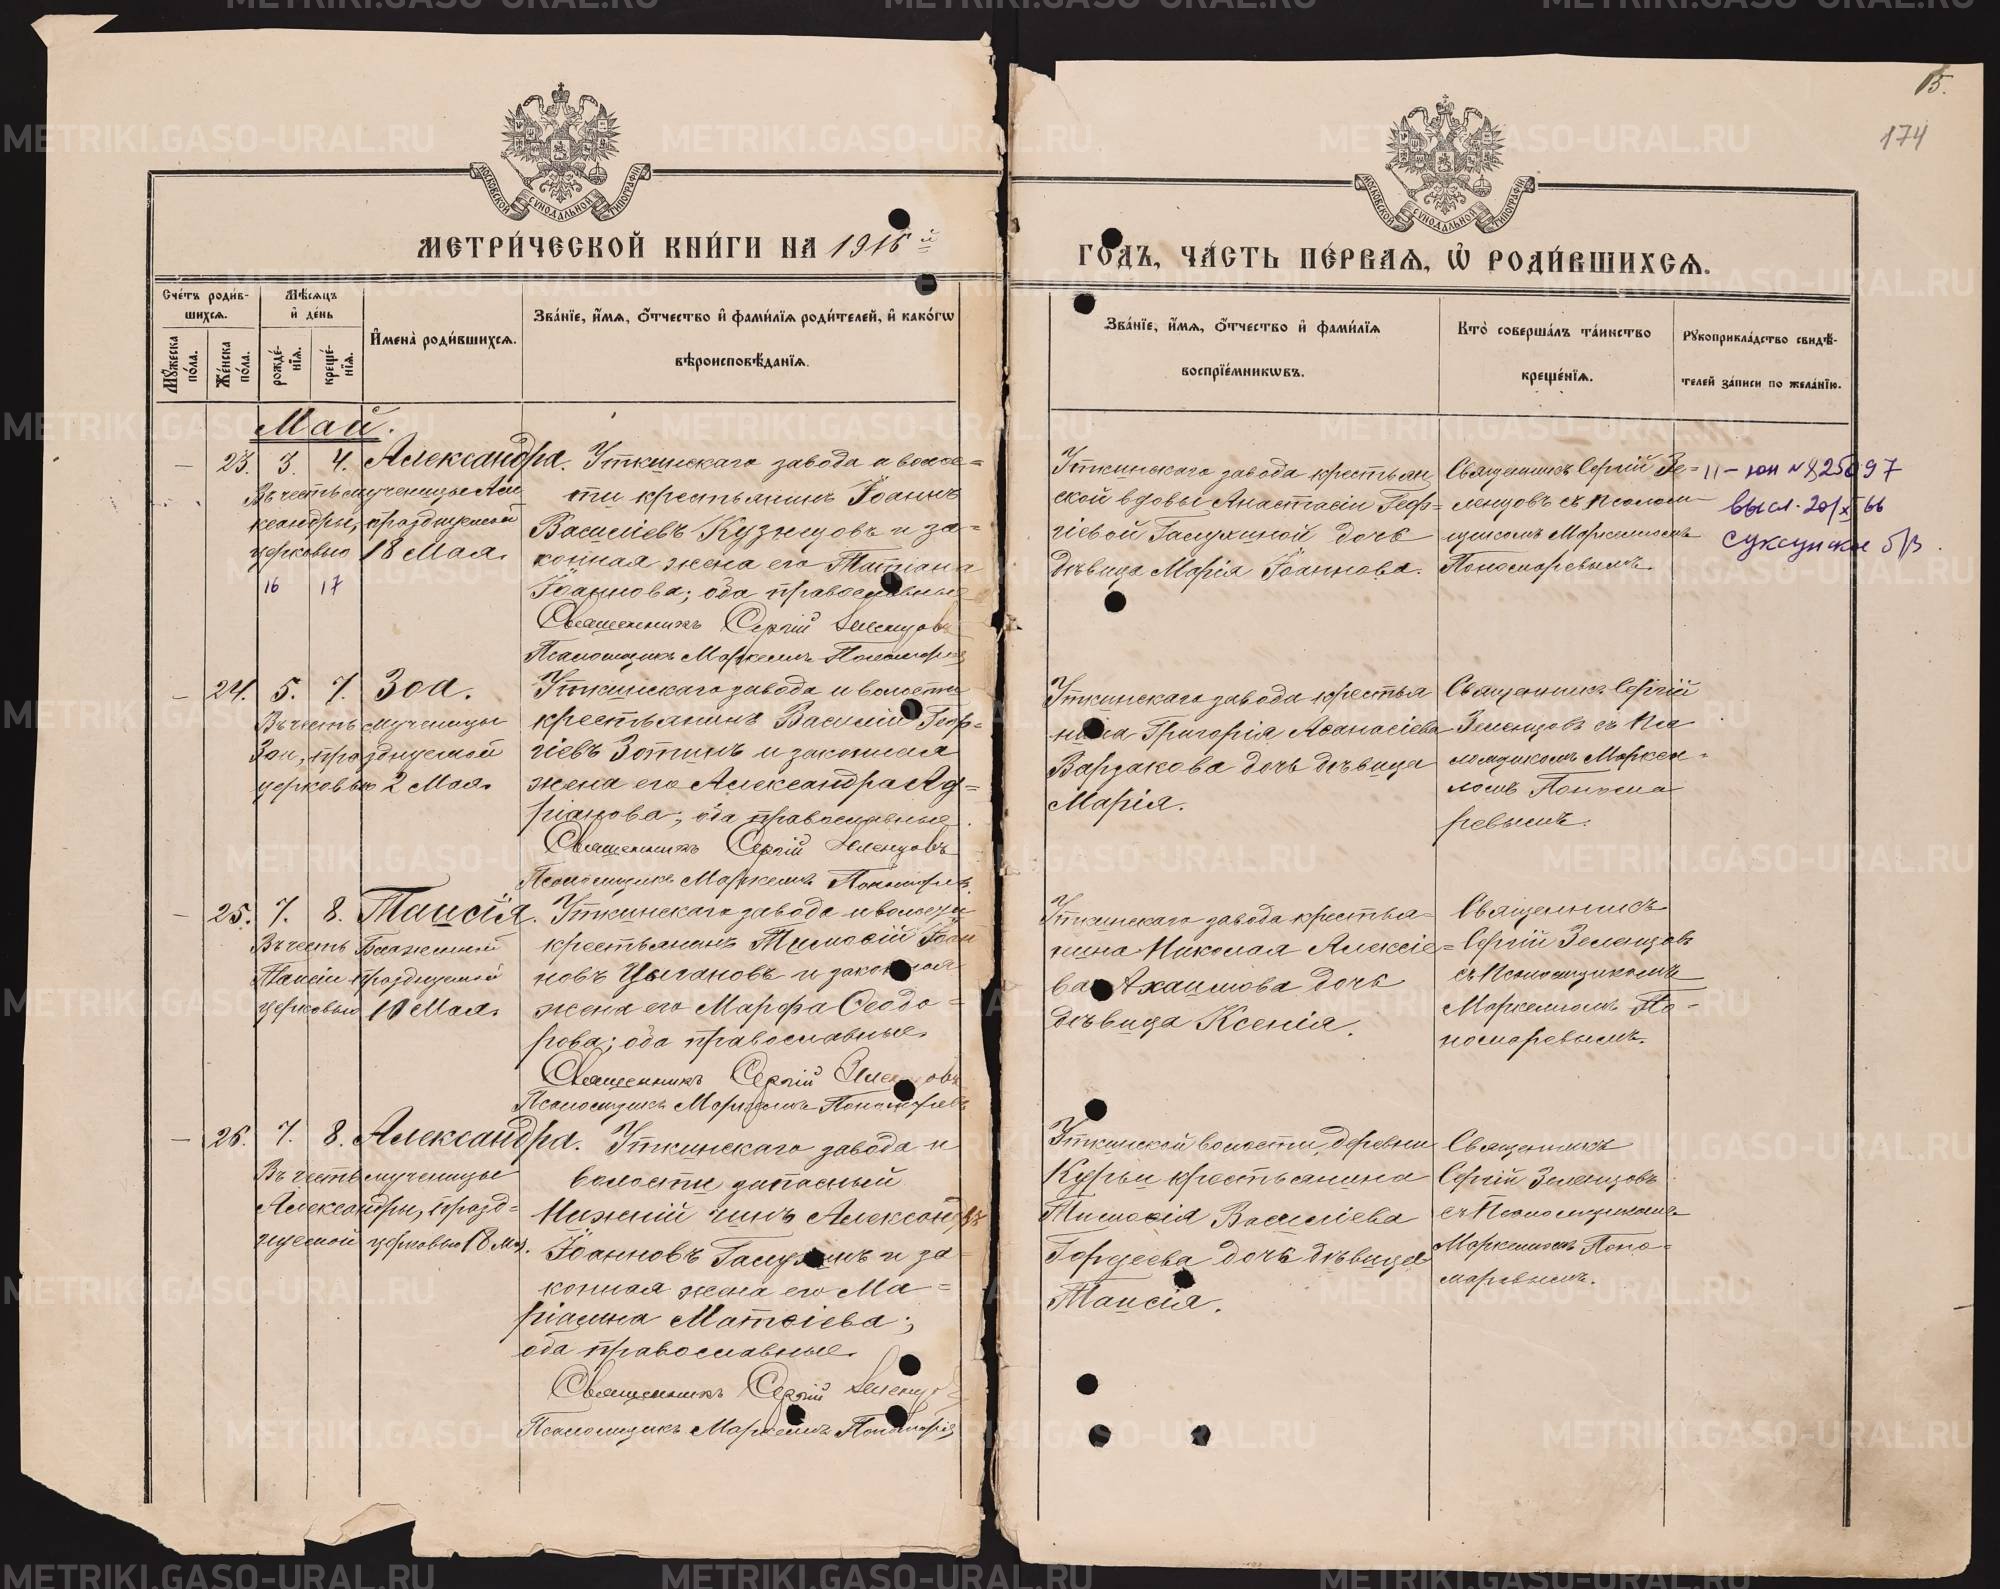 15.
174
МОСКОВСКОЙ СѴНОДАЛЬНОЙ ТИПОГРАФІИ
МОСКОВСКОЙ СѴНОДАЛЬНОЙ ТИПОГРАФІИ
МЕТРИ́ЧЕСКОЙ КНИ́ГИ НА 1916 й
ГО́ДЪ, ЧА́СТЬ ПЕ́РВАѦ, Ѡ҆ РОДИ́ВШИХСѦ.
Сче́тъ роди́в-
шихсѧ.
Мꙋ́жеска по́ла.
Же́нска по́ла.
Мѣ́сѧцъ
и҆ де́нь
рожде́-
нїѧ.
креще́-
нїѧ.
И҆мена̀ роди́вшихсѧ.
Зва́нїе, и҆́мѧ, о҆́тчество и҆ фами́лїѧ роди́телей, и҆ како́гѡ
вѣроисповѣ́данїѧ.
Зва́нїе, и҆́мѧ, о҆́тчество и҆ фами́лїѧ
воспрїе́мникѡвъ.
Кто̀ соверша́лъ та́инство
креще́нїѧ.
Рꙋкоприкла́дство свидѣ́-
телей за́писи по жела́нїю.
Май.
— 23. 3. 4. Александра.
Въ честь мученицы Але
ксандры, празднуемой
церковью 18 Мая.
16 17
Уткинскаго завода и волос=
ти крестьянинъ Іоаннъ
Василіевъ Кузнецовъ и за-
конная жена его Татіана
Іоаннова; оба православные
Священникъ Сергій Зеленцовъ
Псаломщикъ Маркеллъ Пономарев
Уткинскаго завода крестьян
ской вдовы Анастасіи Геор=
гіевой Галухиной дочь
дѣвица Марія Іоаннова.
Священникъ Сергій Зе-
ленцовъ съ псалом-
щикомъ Маркелломъ
Пономаревымъ.
II – юн № 825097
высл. 20/XI 66
Суксунское б/з.
— 24. 5. 7. Зоа.
Въ честь мученицы
Зои, празднуемой
церковью 2 Мая.
Уткинскаго завода и волости
крестьянинъ Василій Геор-
гіевъ Зотинъ и законная
жена его Александра Ад=
ріанова; оба православные.
Священникъ Сергій Зеленцовъ
Псаломщикъ Маркеллъ Пономарев.
Уткинскаго завода крестья
нина Григорія Аѳанасіева
Вардакова дочь дѣвица
Марія.
Священникъ Сергій
Зеленцовъ съ пса
ломщикомъ Маркел-
ломъ Понома
ревымъ.
— 25. 7. 8. Таисія.
Въ честь Блаженной
Таисіи празднуемой
церковью 10 Мая.
Уткинскаго завода и волости
крестьянинъ Тимоѳій Іоан
новъ Цыгановъ и законная
жена его Марфа Ѳеодо-
рова; оба православные.
Священникъ Сергій Зеленцовъ
Псаломщикъ Маркеллъ Пономаревъ
Уткинскаго завода крестья-
нина Николая Алексіе=
ва Ахаимова дочь
дѣвица Ксенія.
Священникъ
Сергій Зеленцовъ
съ псаломщикомъ
Маркелломъ По-
номаревымъ.
— 26. 7. 8. Александра.
Въ честь мученицы
Александры, празд-
нуемой церковью 18 Мая.
Уткинскаго завода и
волости запасный
Нижній чинъ Александръ
Іоанновъ Галухинъ и за-
конная жена его Ма-
ріамна Матѳіева;
оба православные.
Священникъ Сергій Зеленцов
Псаломщикъ Маркеллъ Пономарев
Уткинской волости, деревни
Курьи крестьянина
Тимоѳія Василіева
Гордеева дочь дѣвица
Таисія.
Священникъ
Сергій Зеленцовъ
съ Псаломщикомъ
Маркелломъ Поно-
маревымъ.
METRIKI.GASO-URAL.RU